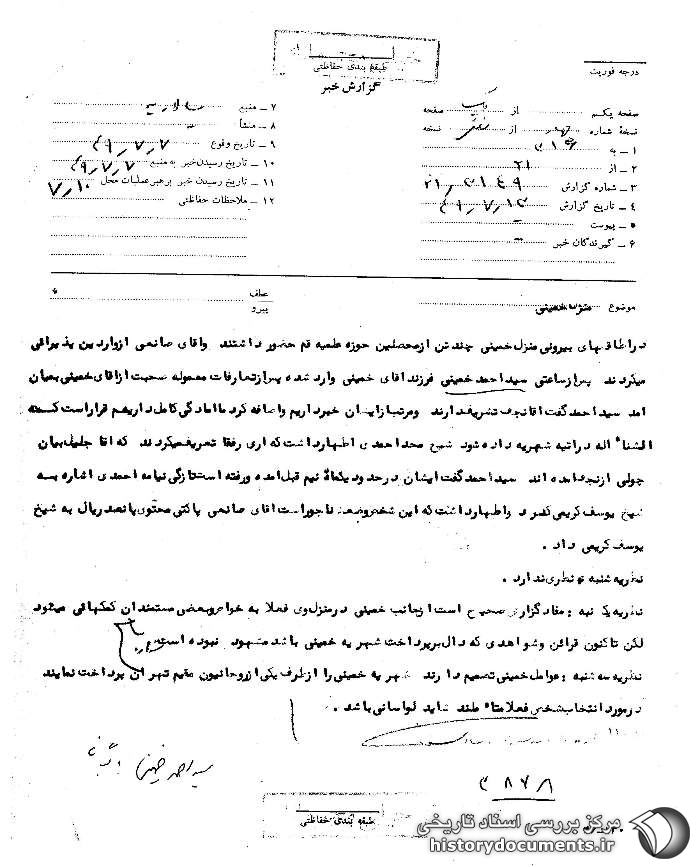 طبقه بندی حفاظتی
درجه فوریت
گزارش خبر
صفحه یکم از یک صفحه
نسخه شماره از نسخه
۱ ـ به ۳۱۶
۲ ـ از ۲۱
۳ ـ شماره گزارش ۲۱٫۳۱۴۹
۴ ـ تاریخ گزارش ۴۹٫۷٫۱۲
۵ ـ پیوست ـ
۶ ـ گیرندگان خبر ـ
۷ ـ منبع
۸ ـ منشأ
۹ ـ تاریخ وقوع ۴۹٫۷٫۷
۱۰ ـ تاریخ رسیدن خبر به منبع ۴۹٫۷٫۷
۱۱ ـ تاریخ رسیدن خبر برهبر عملیات محل ۷٫۱۰
۱۲ ـ ملاحظات حفاظتی
موضوع منزل خمینی
عطف
پیرو
در اطاقهای بیرونی منزل خمینی چند تن از محصلین حوزه علمیه قم حضور داشتند و آقای صانعی از واردین پذیرائی
میکردند پس از ساعتی سید احمد خمینی فرزند آقای خمینی وارد شده پس از تعارفات معموله صحبت از آقای خمینی بمیان
امد سید احمد گفت اقا نجف تشریف دارند و مرتب از ایشان خبر داریم و اضافه کرد ما امادگی کامل داریم قرار است که
انشاء اله در اتیه شهریه داده شود شیخ محمد احمدی اظهار داشت که اری رفقا تعریف میکردند که اقا جلیل بیان
چولی از نجف امده اند سید احمد گفت ایشان در حدود یکماه نیم قبل امده و رفته است تازگی نیامه احمدی اشاره به
شیخ یوسف کریمی کرد و اظهار داشت که این شخص وضعش ناجور است اقای صانعی پاکتی محتوی پانصد ریال به شیخ
یوسف کریمی داد .
نظریه شنبه : نظری ندارد .
نظریه یک شنبه : مفاد گزارش صحیح است از جانب خمینی در منزل وی فعلا به خواص و بعضی مستمندان کمکهائی میشود
لکن تاکنون قرائن و شواهدی که دال بر پرداخت شهریه خمینی باشد مشهود نبوده است
نظریه سه شنبه : عوامل خمینی تصمیم دارند شهریه خمینی را از طرف یکی از روحانیون مقیم تهران پرداخت نمایند
در مورد انتخاب شخص فعلا مشخص نیست شاید لواسانی باشد .
سید احمد خمینی
۳۸۷۸
طبقه بندی حفاظتی
مرکز بررسی اسناد تاریخی
historydocuments.ir